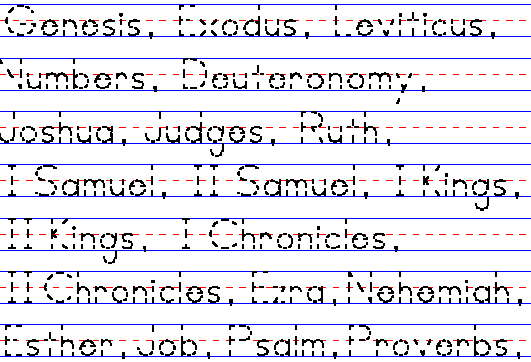 Genesis, Exodus, Leviticus,
Numbers, Deuteronomy,
Joshua, Judges, Ruth,
I Samuel, II Samuel, I Kings,
II Kings, I Chronicles,
II Chronicles, Ezra, Nehemiah,
Esther, Job, Psalm, Proverbs,